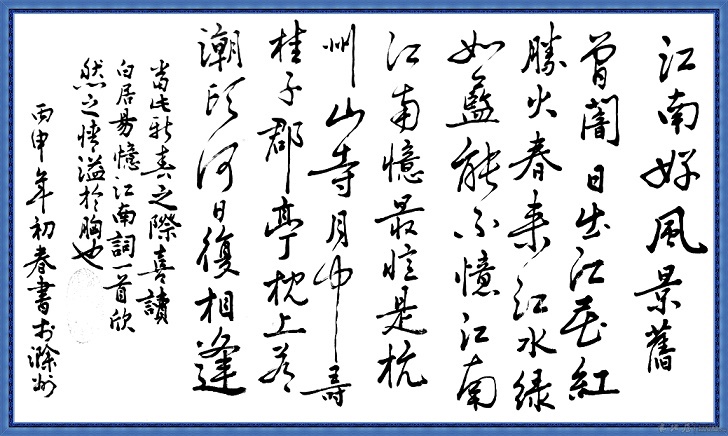 江南好風景舊
曾闇日出江花紅
勝火春来江水緑
如藍能不憶江南
江南憶最憶是杭
州山寺月中尋
桂子郡亭枕上看
潮頭何日復相逢
當此新春之際喜讀
白居易憶江南詞一首欣
然之情溢於胸也
丙申年初春書於滁州